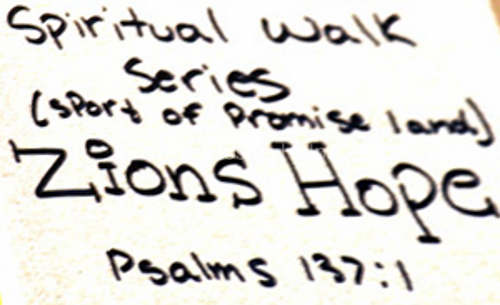 Spiritual Walk
Series
(sport of Promise land)
Zions Hope
Psalms 137:1